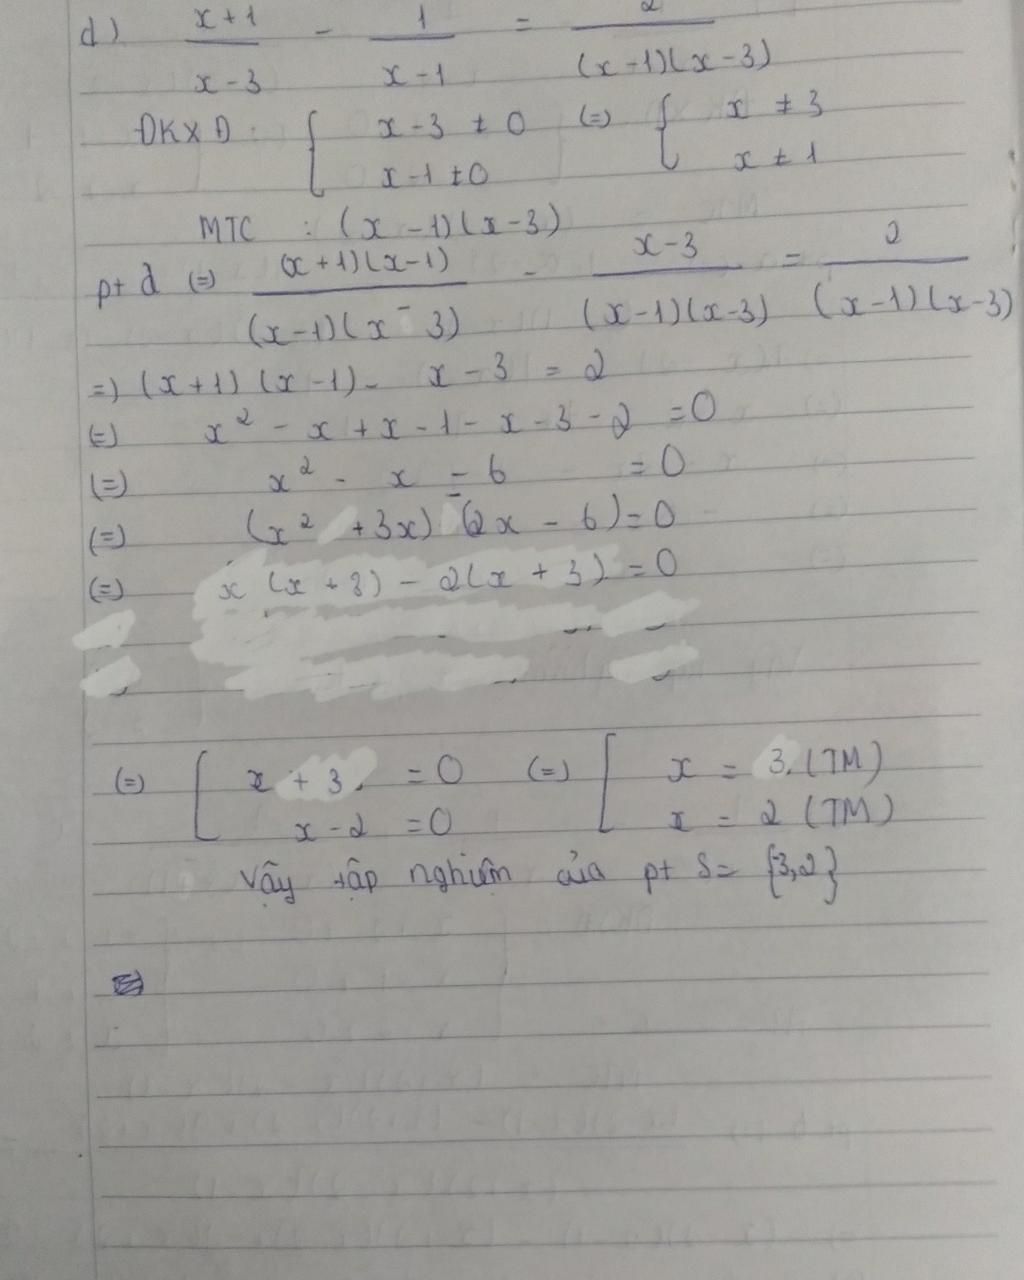 d) x+1 / x-3 - 1 / x-1 = 2 / (x-1)(x-3)
ĐKXĐ: { x-3 ≠ 0 (=) { x ≠ 3
x-1 ≠ 0 x ≠ 1
MTC : (x-1)(x-3)
pt d (=) (x+1)(x-1) / (x-1)(x-3) - x-3 / (x-1)(x-3) = 2 / (x-1)(x-3)
=) (x+1)(x-1) - x-3 = 2
(=) x² - x + x - 1 - x - 3 - 2 = 0
(=) x² - x - 6 = 0
(=) (x² + 3x) - (2x - 6) = 0
(=) x(x+3) - 2(x+3) = 0
(=) [ x + 3 = 0 (=) [ x = 3 (TM)
x - 2 = 0 x = 2 (TM)
Vậy tập nghiệm của pt S = {3,2}